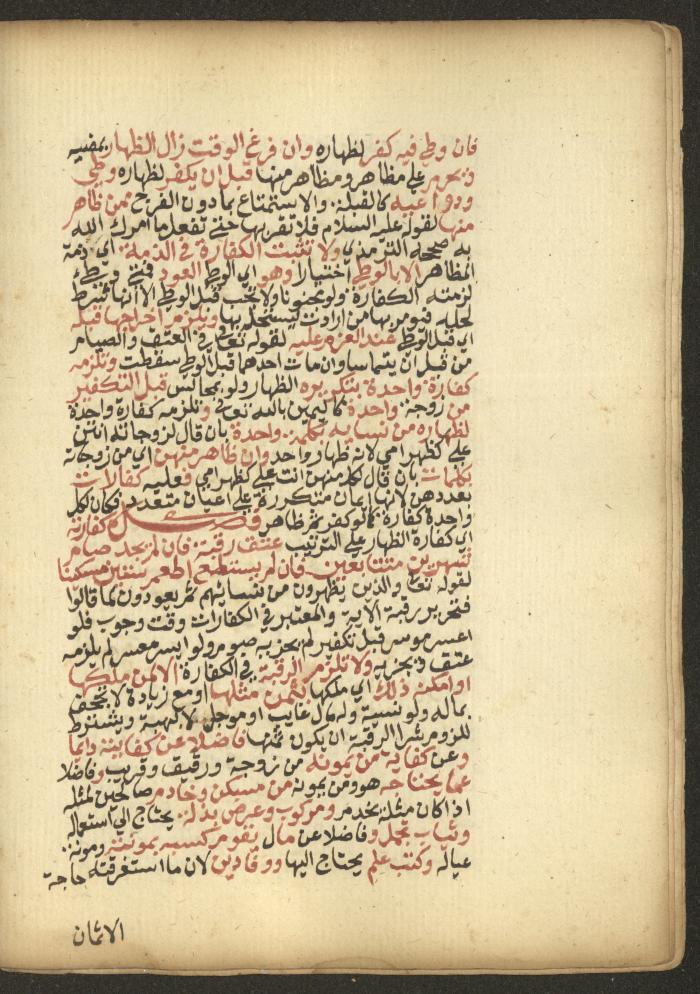 فان وطئ فيه كفر لظهاره وان فرغ الوقت زال الظهار بمضيه
ويحرم على مظاهر ومظاهر منها قبل ان يكفر لظهاره وطئ
ودواعيه كالقبلة والاستمتاع بما دون الفرج ممن ظاهر
منها لقوله عليه السلام فلا تقربها حتى تفعل ما امرك الله
به صححه الترمذي ولا تثبت الكفارة في الذمة اي ذمة
المظاهر الا بالوطئ اختيارا وهو اي الوطئ العود فمتى وطئ
لزمته الكفارة ولو مجنونا ولا يجب قبل الوطئ الا انها شرط
لحله فيومر بها من اراده ليستحله بها ويلزم اخراجها قبله
اي قبل الوطئ عند العزم عليه لقوله تعالى في العتق والصيام
من قبل ان يتماسا وان مات احدهما قبل الوطئ سقطت وتلزمه
كفارة واحدة بتكريره الظهار ولو بمجالس قبل التكفير
من زوجة واحدة كاليمين بالله تعالى وتلزمه كفارة واحدة
لظهاره من نسايه بكلمة واحدة بان قال لزوجاته انتن
علي كظهر امي لانه ظهار واحد وان ظاهر منهن اي من زوجاته
بكلمات بان قال لكل منهن انت علي كظهر امي فعليه كفارات
بعددهن لانها ايمان متكررة على اعيان متعددة فكان لكل
واحدة كفارة كما لو كفر ثم ظاهر فصل كفارته
اي كفارة الظهار على الترتيب عتق رقبة فان لم يجد صيام
شهرين متتابعين فان لم يستطع اطعم ستين مسكينا
لقوله تعالى والذين يظهرون من نسائهم ثم يعودون لما قالوا
فتحرير رقبة الاية والمعتبر في الكفارات وقت وجوب فلو
اعسر موسر قبل تكفير لم يجزيه صوم ولو ايسر معسر لم يلزمه
عتق ويجزيه ولا تلزم الرقبة في الكفارة الا لمن ملكها
او امكنه ذلك اي ملكها بثمن مثلها او مع زيادة لا تجحف
بماله ولو نسية وله مال غايب او موجل لا بهبة ويشترط
للزوم شرا الرقبة ان يكون ثمنها فاضلا عن كفايته دايما
وعن كفاية من يمونه من زوجة ورقيق وقريب وفاضلا
عما يحتاجه هو ومن يمونه من مسكن وخادم صالحين لمثله
اذا كان مثله يخدم ومركوب وعرض بذلة يحتاج الى استعماله
وثياب تجمل وفاضلا عن مال يقوم كسبه بمونته ومونة
عياله وكتب علم يحتاج اليها ووفا دين لان ما استغرقته حاجة
الاثمان